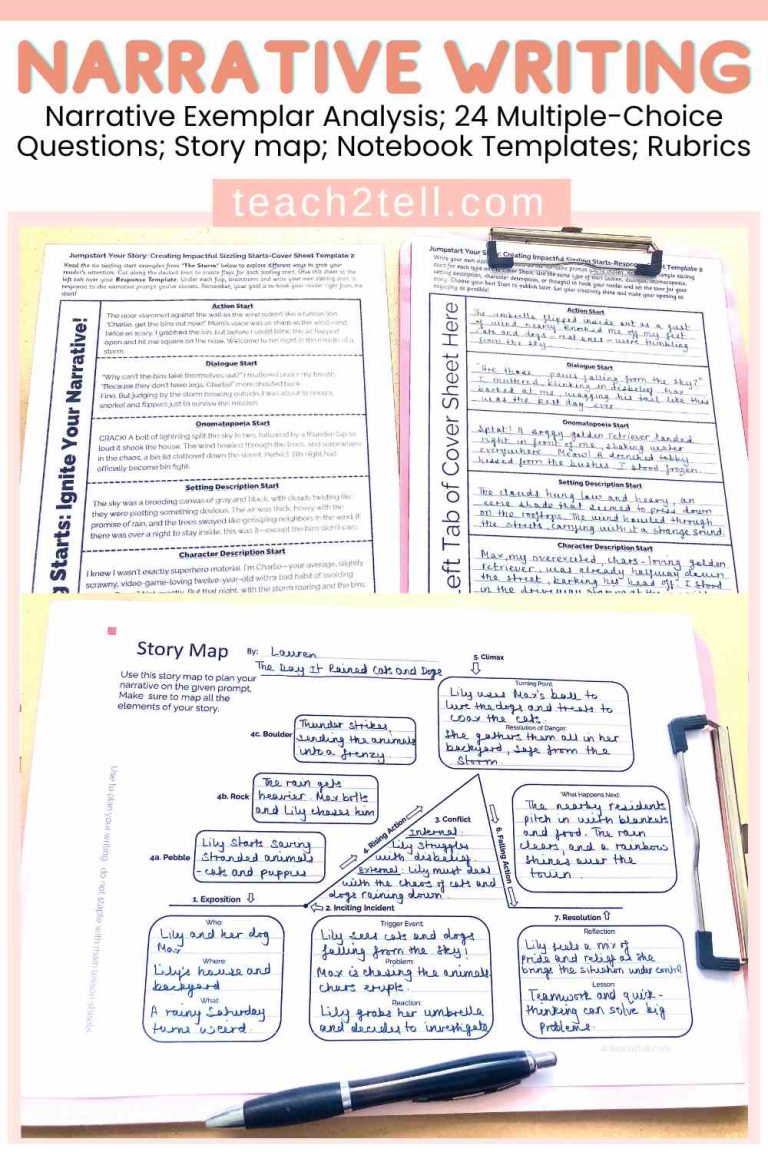 NARRATIVE WRITING
Narrative Exemplar Analysis; 24 Multiple-Choice
Questions; Story map; Notebook Templates; Rubrics
teach2tell.com
Jumpstart Your Story: Creating Impactful Sizzling Starts-Cover Sheet Template 2
Read the six exciting start examples from "The Storm" below to explore different ways to grab your
reader's attention. Cut along the dashed lines to create flaps for each sizzling start. Glue this sheet at the
left tab over your Response Template. Under each flap, brainstorm and write your own sizzling start in
response to the narrative prompt you've chosen. Remember, your goal is to hook your reader right from the
start!
g Starts: Ignite Your Narrative!
Action Start
The door slammed against the wall as the wind roared like a furious lion.
"Charlie, get the bins out now!" Mom's voice was as sharp as the wind—and
twice as scary. I grabbed the bin, but before I could blink, the lid flapped
open and hit me square on the nose. Welcome to bin night in the middle of a
storm.
Dialogue Start
"Why can't the bins take themselves out?" I muttered under my breath.
"Because they don't have legs, Charlie!" mom shouted back.
Fine. But judging by the storm brewing outside, I was about to need a
snorkel and flippers just to survive this mission.
Onomatopoeia Start
CRACK! A bolt of lightning split the sky in two, followed by a thunderclap so
loud it shook the house. The wind howled through the trees, and somewhere
in the chaos, a bin lid clattered down the street. Perfect. Bin night had
officially become bin fight.
Setting Description Start
The sky was a brooding canvas of gray and black, with clouds twisting like
they were plotting something devious. The air was thick, heavy with the
promise of rain, and the trees swayed like gossiping neighbors in the wind. If
there was ever a night to stay inside, this was it—except the bins didn't care.
Character Description Start
I knew I wasn't exactly superhero material. I'm Charlie—your average, slightly
scrawny, video-game-loving twelve-year-old with a bad habit of avoiding
But that night, with the storm roaring and the bins
Jumpstart Your Creating Impactful Sizzling Starts-Template 2
eft Tab of Cover Sheet Here
Action Start
The umbrella flipped inside out as a gust
of wind nearly knocked me off my feet.
Cats and dogs - real ones - were tumbling
from the sky.
Dialogue Start
"Are those... paws falling from the sky?"
I muttered, blinking in disbelief. Max
barked at me, wagging his tail like this
was the best day ever.
Onomatopoeia Start
Splat! A soggy golden retriever landed
right in front of me, shaking water
everywhere. Meow! A drenched tabby
hissed from the bushes. I stood frozen.
Setting Description Start
The clouds hung low and heavy, an
eerie shade that seemed to press down
on the rooftops. The wind howled through
the streets, carrying with it a strange sound.
Character Description Start
Max, my overexcited, chaos-loving golden
retriever, was already halfway down
the street, barking his head off. I stood
in the driveway
Story Map
By: Lauren
The Day It Rained Cats and Dogs
Use this story map to plan your
narrative on the given prompt.
Make sure to map all the
elements of your story.
5. Climax
Turning Point
Lily uses Max's ball to
lure the dogs and treats to
coax the cats.
Resolution of Danger
She gathers them all in her
backyard, safe from the
storm.
4c. Boulder
Thunder strikes,
sending the animals
into a frenzy.
4b. Rock
The rain gets
heavier. Max bolts
and Lily chases him
4a. Pebble
Lily starts saving
stranded animals
- cats and puppies
4. Rising Action
3. Conflict
Internal:
Lily struggles
with disbelief.
External: Lily must deal
with the chaos of cats and
dogs raining down.
6. Falling Action
What Happens Next:
The nearby residents
pitch in with blankets
and food. The rain
clears, and a rainbow
shines over the
town.
1. Exposition
Who:
Lily and her dog
Max
Where:
Lily's house and
backyard
What:
A rainy Saturday
turns weird.
2. Inciting Incident
Trigger Event:
Lily sees cats and dogs
falling from the sky!
Problem:
Max is chasing the animals
chaos erupts.
Reaction:
Lily grabs her umbrella
and decides to investigate
7. Resolution
Reflection:
Lily feels a mix of
pride and relief as she
brings the situation under control
Lesson:
Teamwork and quick-
thinking can solve big
problems.
Use to plan your writing; do not staple with main lesson sheets
© teach2tell.com